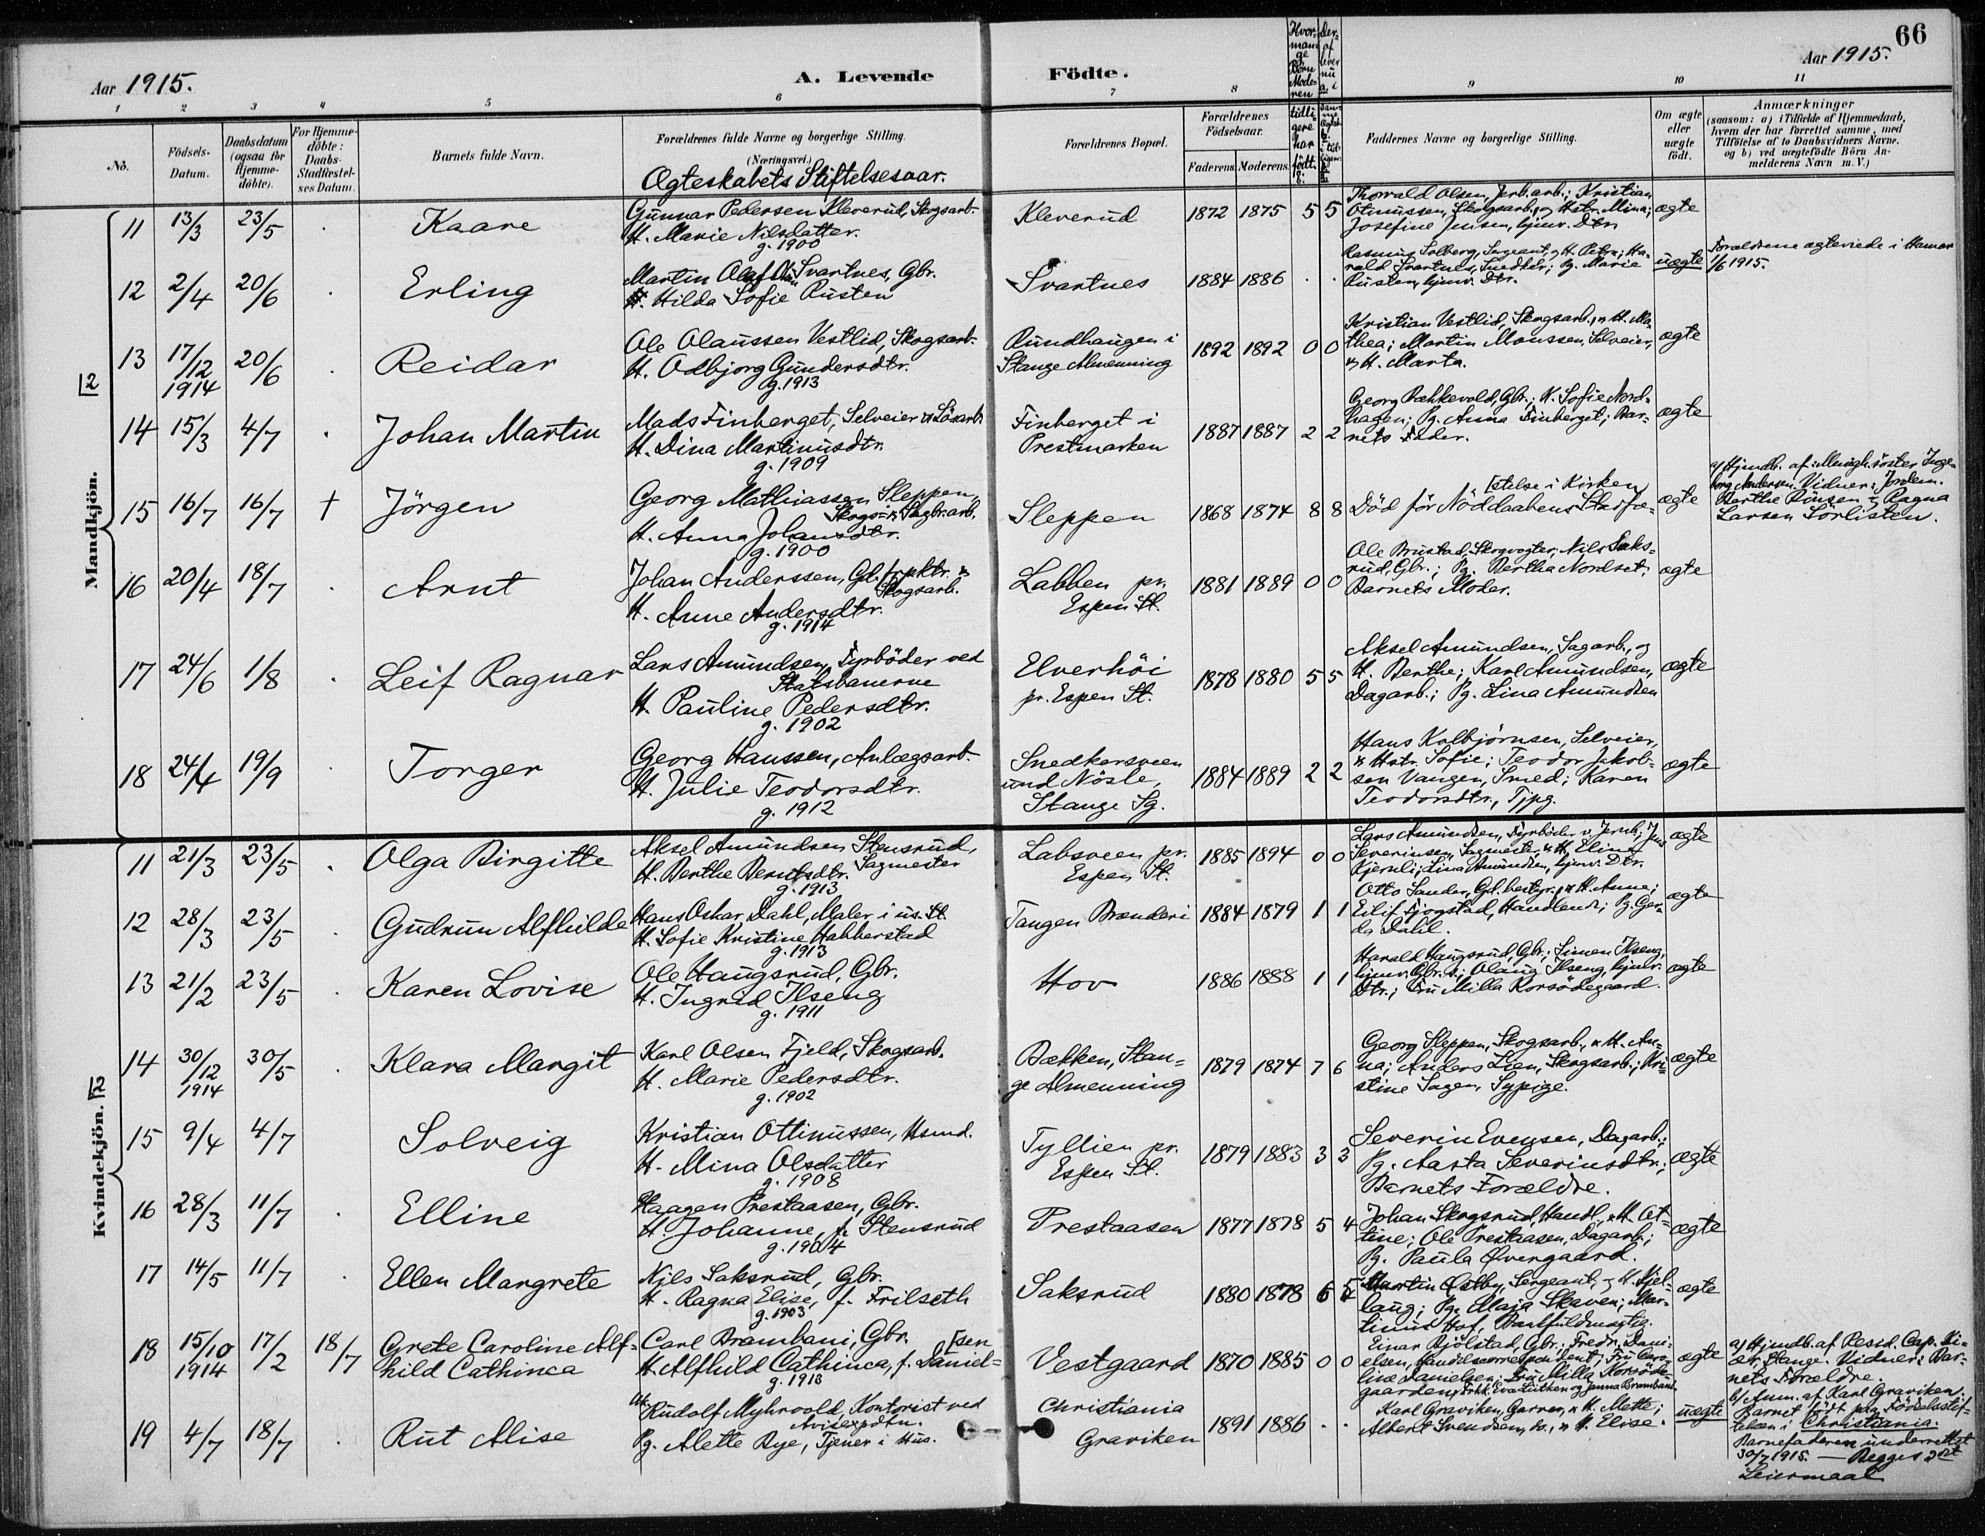 66
Aar 1915.
A. Levende Födte.
Aar 1915.
1 2 3 4 5 6 7 8 9 10 11
No.
Födsels-Datum.
Daabsdatum (ogsaa for Hjemme-döbte).
For Hjemme-döbte: Daabs-Stadfæstel-ses Datum.
Barnets fulde Navn.
Forældrenes fulde Navne og borgerlige Stilling.
(Næringsvei.)
Ægteskabets Stiftelsesaar.
Forældrenes Bopæl.
Forældrenes Födselsaar.
Faderens. Moderens.
Hvor-man-ge Børn Mode-ren tidli-gere har født.
Faddernes Navne og borgerlige Stilling.
Om ægte eller uægte födt.
Anmærkninger
(saasom: a) i Tilfælde af Hjemmedaab,
hvem der har forrettet samme, med
Tilföielse af to Daabsvidners Navne,
og b) ved uægtefödte Börn An-
melderens Navn m. V.)
Mandkjön.
11 13/3 23/5 Kaare
Gunnar Pedersen Kleverud, Skogsarb.
H. Marie Nilsdatter.
g. 1900
Kleverud 1872 1875 5 5
Thorvald Olsen, Jernb.arb.; Kristian
Otinussen, Skogsarb., og Hstr. Mina;
Josefine Jensen, hjemv. Dtr.
ægte
12 2/4 20/6 Erling
Martin Olaf Svartnes, Gbr.
H. Hilda Sofie Rusten
Svartnes 1884 1886 . .
Rasmus Solberg, Sergeant, og H. Petra; Ha-
rald Svartnes, Snedker; Pg. Marie
Rusten, hjemv. Dtr.
uægte
Forældrene ægteviede i Hamar
1/6 1915.
13 17/12 1914 20/6 Reidar
Ole Olaussen Vestlid, Skogsarb.
H. Odbjørg Gundersdtr.
g. 1913
Rundhaugen i
Stange Almenning
1892 1892 0 0
Kristian Vestlid, Skogsarb., og H. Ma-
thea; Martin Monssen, Selveier,
og H. Marta.
ægte
14 15/3 4/7 Johan Martin
Mads Finberget, Selveier og Løsarb.
H. Dina Martinusdtr.
g. 1909
Finberget i
Prestmarken
1887 1887 2 2
Georg Bækkevold, Gbr.; K. Sofie Nord-
hagen; Pg. Anna Finberget; Bar-
nets Fader.
ægte
15 16/7 16/7 † Jörgen
Georg Mathiassen Sleppen,
Skogs- og Sagbr.arb.
H. Anna Johansdtr.
g. 1900
Sleppen 1868 1874 8 8
Död för Nöddaabens Stadfæ-
stelse i Kirken
ægte
a) Hjemdb. af Menigh.söster Inge-
borg Andersen. Vidner: Jordem.
Berthe Rönsen og Ragna
Larsen Sörlisten.
16 20/4 18/7 Arnt
Johan Anderssen, Gd.forpktr. og
Skogsarb.
H. Anne Andersdtr.
g. 1914
Labben pr.
Espen St.
1881 1889 0 0
Ole Brustad, Skogvogter, Nils Saks-
rud, Gbr.; Pg. Bertha Nordset;
Barnets Moder.
ægte
17 24/6 1/8 Leif Ragnar
Lars Amundsen, Fyrböder ved
Statsbanerne
H. Pauline Pedersdtr.
g. 1902
Elverhöi
pr. Espen St.
1878 1880 5 5
Aksel Amundsen, Sagarb., og
H. Berthe; Karl Amundsen,
Dagarb.; Pg. Lina Amundsen
ægte
18 24/4 19/9 Torger
Georg Hanssen, Anlægsarb.
H. Julie Teodorsdtr.
g. 1912
Snedkersveen
und Nösle,
Stange Sg.
1884 1889 2 2
Hans Kolbjørnsen, Selveier,
og Hstr. Sofie; Teodor Jakob-
sen Vangen, Smed; Karen
Teodorsdtr., Tjpg.
ægte
Kvindekjön.
11 21/3 23/5 Olga Birgitte
Aksel Amundsen Stensrud,
Sagmester
H. Berthe Berntsdtr.
g. 1913
Labsveen pr.
Espen St.
1885 1894 0 0
Lars Amundsen, Fyrböder v. Jernb.; Jens
Severinsen, Sagmester, og H. Elina
Kjernli; Lina Amundsen, hjemv. Dtr.
ægte
12 28/3 23/5 Gudrun Alfhilde
Hans Oskar Dahl, Maler i us. St.
H. Sofie Kristine Habberstad
g. 1913
Tangen Brænderi 1884 1879 1 1
Otto Sander, Gd.bestyr., og H. Anne;
Eilif Fjogstad, Handlende; Pg. Ger-
da Dahl.
ægte
13 21/2 23/5 Karen Lovise
Ole Haugsrud, Gbr.
H. Ingrid Ilseng
g. 1911
Hov 1886 1888 1 1
Harald Haugsrud, Gbr.; Simen Ilseng,
hjemv. Gbr.s.; Olaug Ilseng, hjemv.
Dtr.; Fru Milla Korsödegaard.
ægte
14 30/12 1914 30/5 Klara Margit
Karl Olsen Fjeld, Skogsarb.
H. Marie Pedersdtr.
g. 1902
Bækken, Stan-
ge Almenning
1879 1874 7 6
Georg Sleppen, Skogsarb., og H. An-
na; Anders Lien, Skogsarb.; Kri-
stine Sagen, Sypige.
ægte
15 9/4 4/7 Solveig
Kristian Ottinussen, Hsmd.
H. Mina Olsdatter
g. 1908
Tyllien pr.
Espen St.
1879 1883 3 3
Severin Evensen, Dagarb.;
Pg. Aasta Severinsdtr.;
Barnets Forældre.
ægte
16 28/3 11/7 Elline
Haagen Prestaasen, Gbr.
H. Johanne, f. Stensrud
g. 1904
Prestaasen 1877 1878 5 4
Johan Skogsrud, Handl., og H. Ot-
tine; Ole Prestaasen, Dagarb.;
Pg. Paula Øvergaard.
ægte
17 14/5 11/7 Ellen Margrete
Nils Saksrud, Gbr.
H. Ragna Elise, f. Frilseth
g. 1903
Saksrud 1880 1878 6 5
Martin Østby, Sergeant, og H. Hjel-
laug; Pg. Maja Skaven; Mar-
tinus Hof, Banfuldmægtig.
ægte
18 15/10 1914 17/2 18/7 Grete Caroline Alf-
hild Cathinca
Carl Brambani, Gbr.
H. Alfhild Cathinca, f. Daniel-
sen
g. 1913
Vestgaard 1870 1885 0 0
Einar Bjölstad, Gbr.; Fredr. Dani-
elsen, Handelskorrespondent; Fru Caro-
line Danielsen; Fru Milla Korsöde-
gaarden; Frk. Eva Lütken og Janna Brambani.
ægte
a) Hjemdb. af Resid. Cap. Ki-
ær, Stange. Vidner: Bar-
nets Forældre.
19 4/7 18/7 Rut Alise
Uk. Rudolf Myhrvold, Kontorist ved
Avisexpdtn.
Pg. Alette Rye, Tjener i Hus.
Christiania
Graviken
1891 1886 . .
Karl Graviken, Garver, og H. Mette;
Albert Svendsen, do., og H. Elise.
uægte
b) Anm. af Karl Graviken.
Barnet födt paa Födselsstif-
telsen i Christiania.
Barnefaderen underrettet
30/7 1915. — Begges 2det
Leiermaal